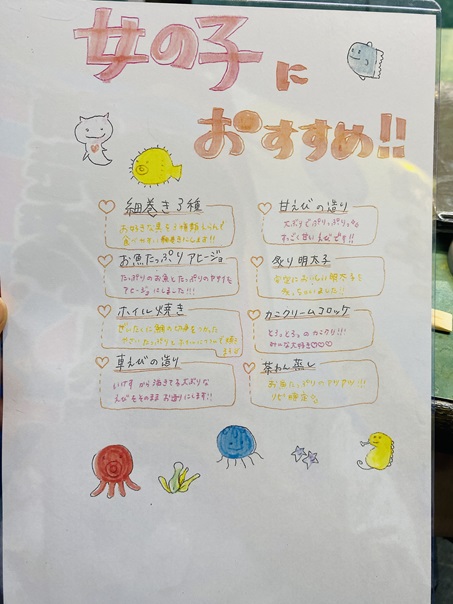 女の子に
おすすめ!!
細巻き3種
お好きな具を3種類えらんで
食べやすい細巻きにします!!
お魚たっぷりアヒージョ
たっぷりのお魚とたっぷりのヤサイを
アヒージョにしました!!
ホイル焼き
ぜいたくに鯛の切身をつかった
車えびの造り
いけすから活きてる大ぶりな
えびをそのままお造りにします!!
甘えびの造り
大ぶりでぷりっぷりっの
すっごく甘いえびです!!
炙り明太子
カニクリームコロッケ
とろっとろっのカニクリ!!!
みんな大好き♡♡♡
茶わん蒸し
お魚たっぷりのアツアツ!!!
リピ確定